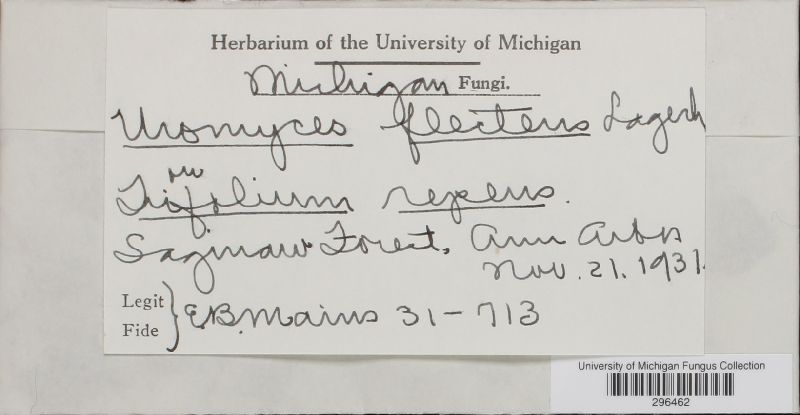 Herbarium of the University of Michigan
Michigan Fungi.
Uromyces flectens Lagerh
on
Trifolium repens.
Saginaw Forest, Ann Arbor
Nov. 21. 1931.
Legit
Fide
E.B. Mains 31-713
University of Michigan Fungus Collection
296462